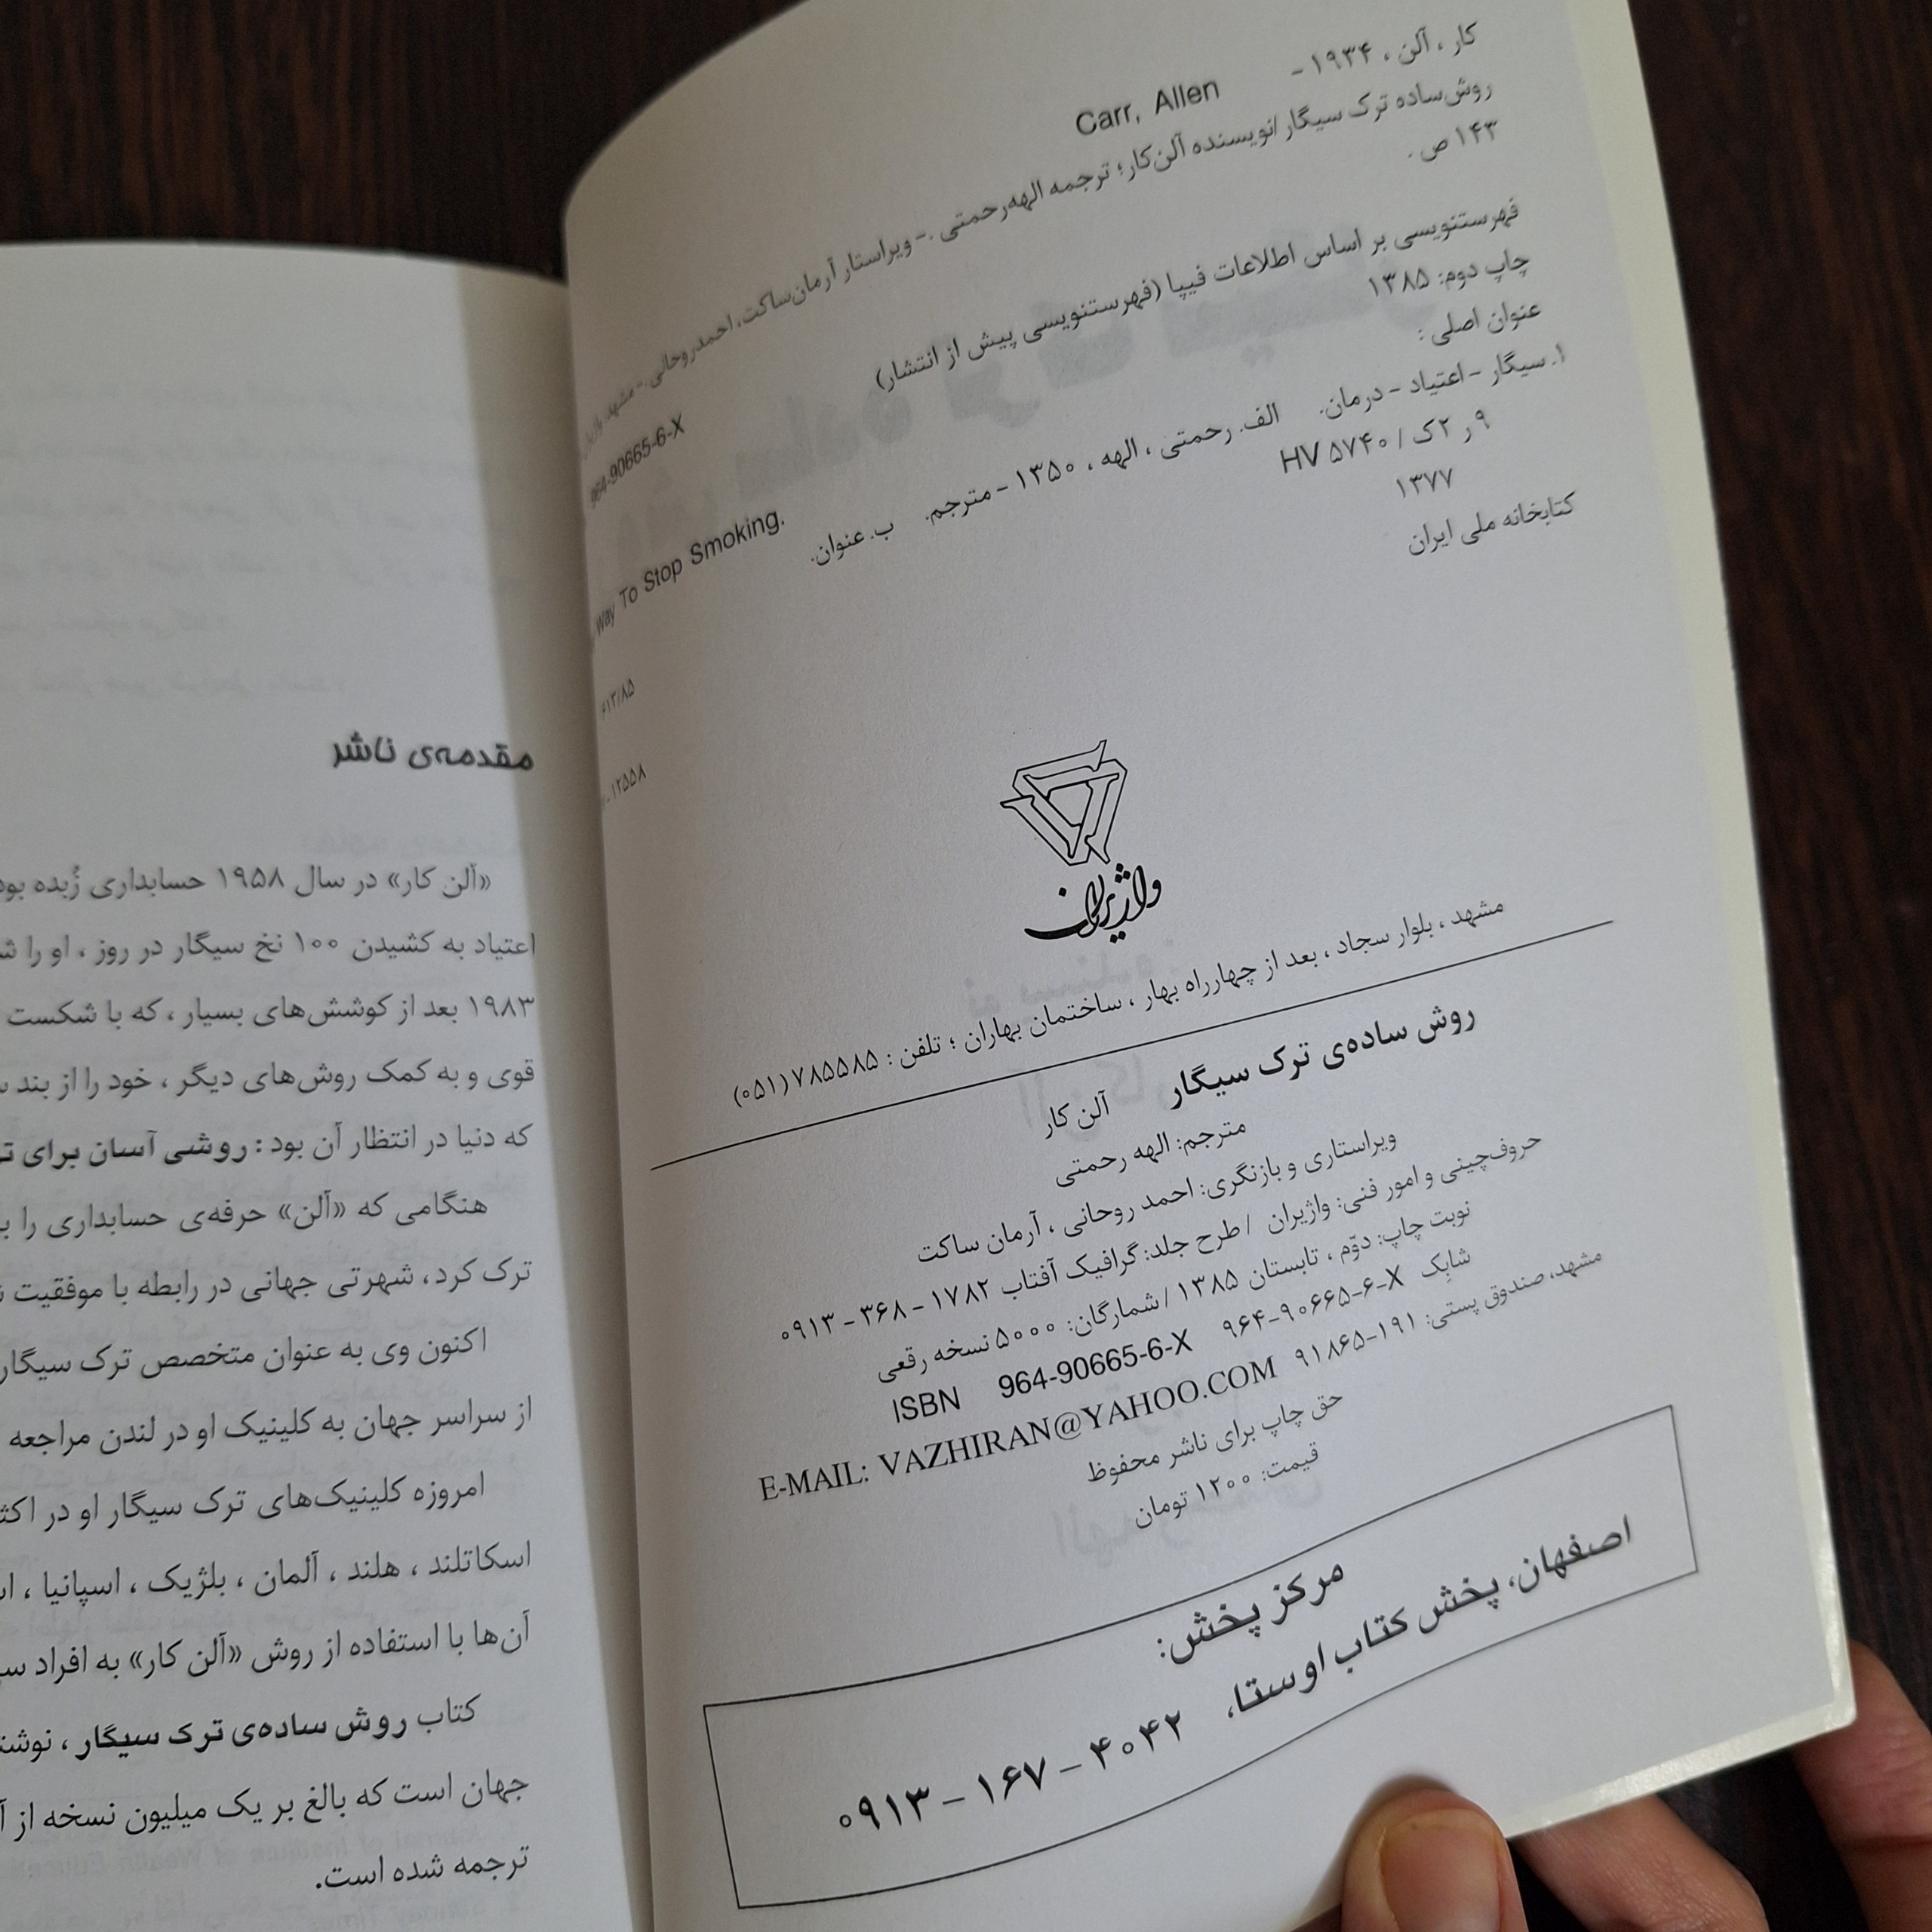 کار ، آلن ، ۱۹۳۴ -
Carr, Allen
روش‌ساده ترک سیگار /نویسنده آلن‌کار؛ ترجمه الهه‌رحمتی .- ویراستار آرمان‌ساکت، احمدروحانی.- مشهد:
۱۴۳ ص .
964-90665-6-X
فهرستنویسی بر اساس اطلاعات فیپا (فهرستنویسی پیش از انتشار)
چاپ دوم: ۱۳۸۵
عنوان اصلی :
Way To Stop Smoking.
۱. سیگار - اعتیاد - درمان. الف. رحمتی ، الهه ، ۱۳۵۰ - مترجم. ب. عنوان.
۹ر ۲ک / HV ۵۷۴۰
۱۳۷۷
کتابخانه ملی ایران
واژیران
مشهد ، بلوار سجاد ، بعد از چهارراه بهار ، ساختمان بهاران ؛ تلفن : ۷۸۵۵۸۵(۰۵۱)
روش ساده‌ی ترک سیگار
آلن کار
مترجم: الهه رحمتی
ویراستاری و بازنگری: احمد روحانی ، آرمان ساکت
حروف‌چینی و امور فنی: واژیران / طرح جلد: گرافیک آفتاب ۱۷۸۲ - ۳۶۸ - ۰۹۱۳
نوبت چاپ: دوّم ، تابستان ۱۳۸۵ / شمارگان: ۵۰۰۰ نسخه رقعی
شابِک ۹۶۴-۹۰۶۶۵-۶-X ISBN 964-90665-6-X
مشهد، صندوق پستی: ۱۹۱-۹۱۸۶۵ E-MAIL: VAZHIRAN@YAHOO.COM
حق چاپ برای ناشر محفوظ
قیمت: ۱۲۰۰ تومان
مرکز پخش:
اصفهان، پخش کتاب اوستا،
۰۹۱۳ - ۱۶۷ - ۴۰۴۲
مقدمه‌ی ناشر
«آلن کار» در سال ۱۹۵۸ حسابداری زُبده بود
اعتیاد به کشیدن ۱۰۰ نخ سیگار در روز ، او را
۱۹۸۳ بعد از کوشش‌های بسیار ، که با شکست
قوی و به کمک روش‌های دیگر ، خود را از بند
که دنیا در انتظار آن بود : روشی آسان برای
هنگامی که «آلن» حرفه‌ی حسابداری را
ترک کرد ، شهرتی جهانی در رابطه با موفقیت
اکنون وی به عنوان متخصص ترک سیگار
از سراسر جهان به کلینیک او در لندن مراجعه
امروزه کلینیک‌های ترک سیگار او در
اسکاتلند ، هلند ، آلمان ، بلژیک ، اسپانیا ،
آن‌ها با استفاده از روش «آلن کار» به افراد
کتاب روش ساده‌ی ترک سیگار ،
جهان است که بالغ بر یک میلیون نسخه از
ترجمه شده است.